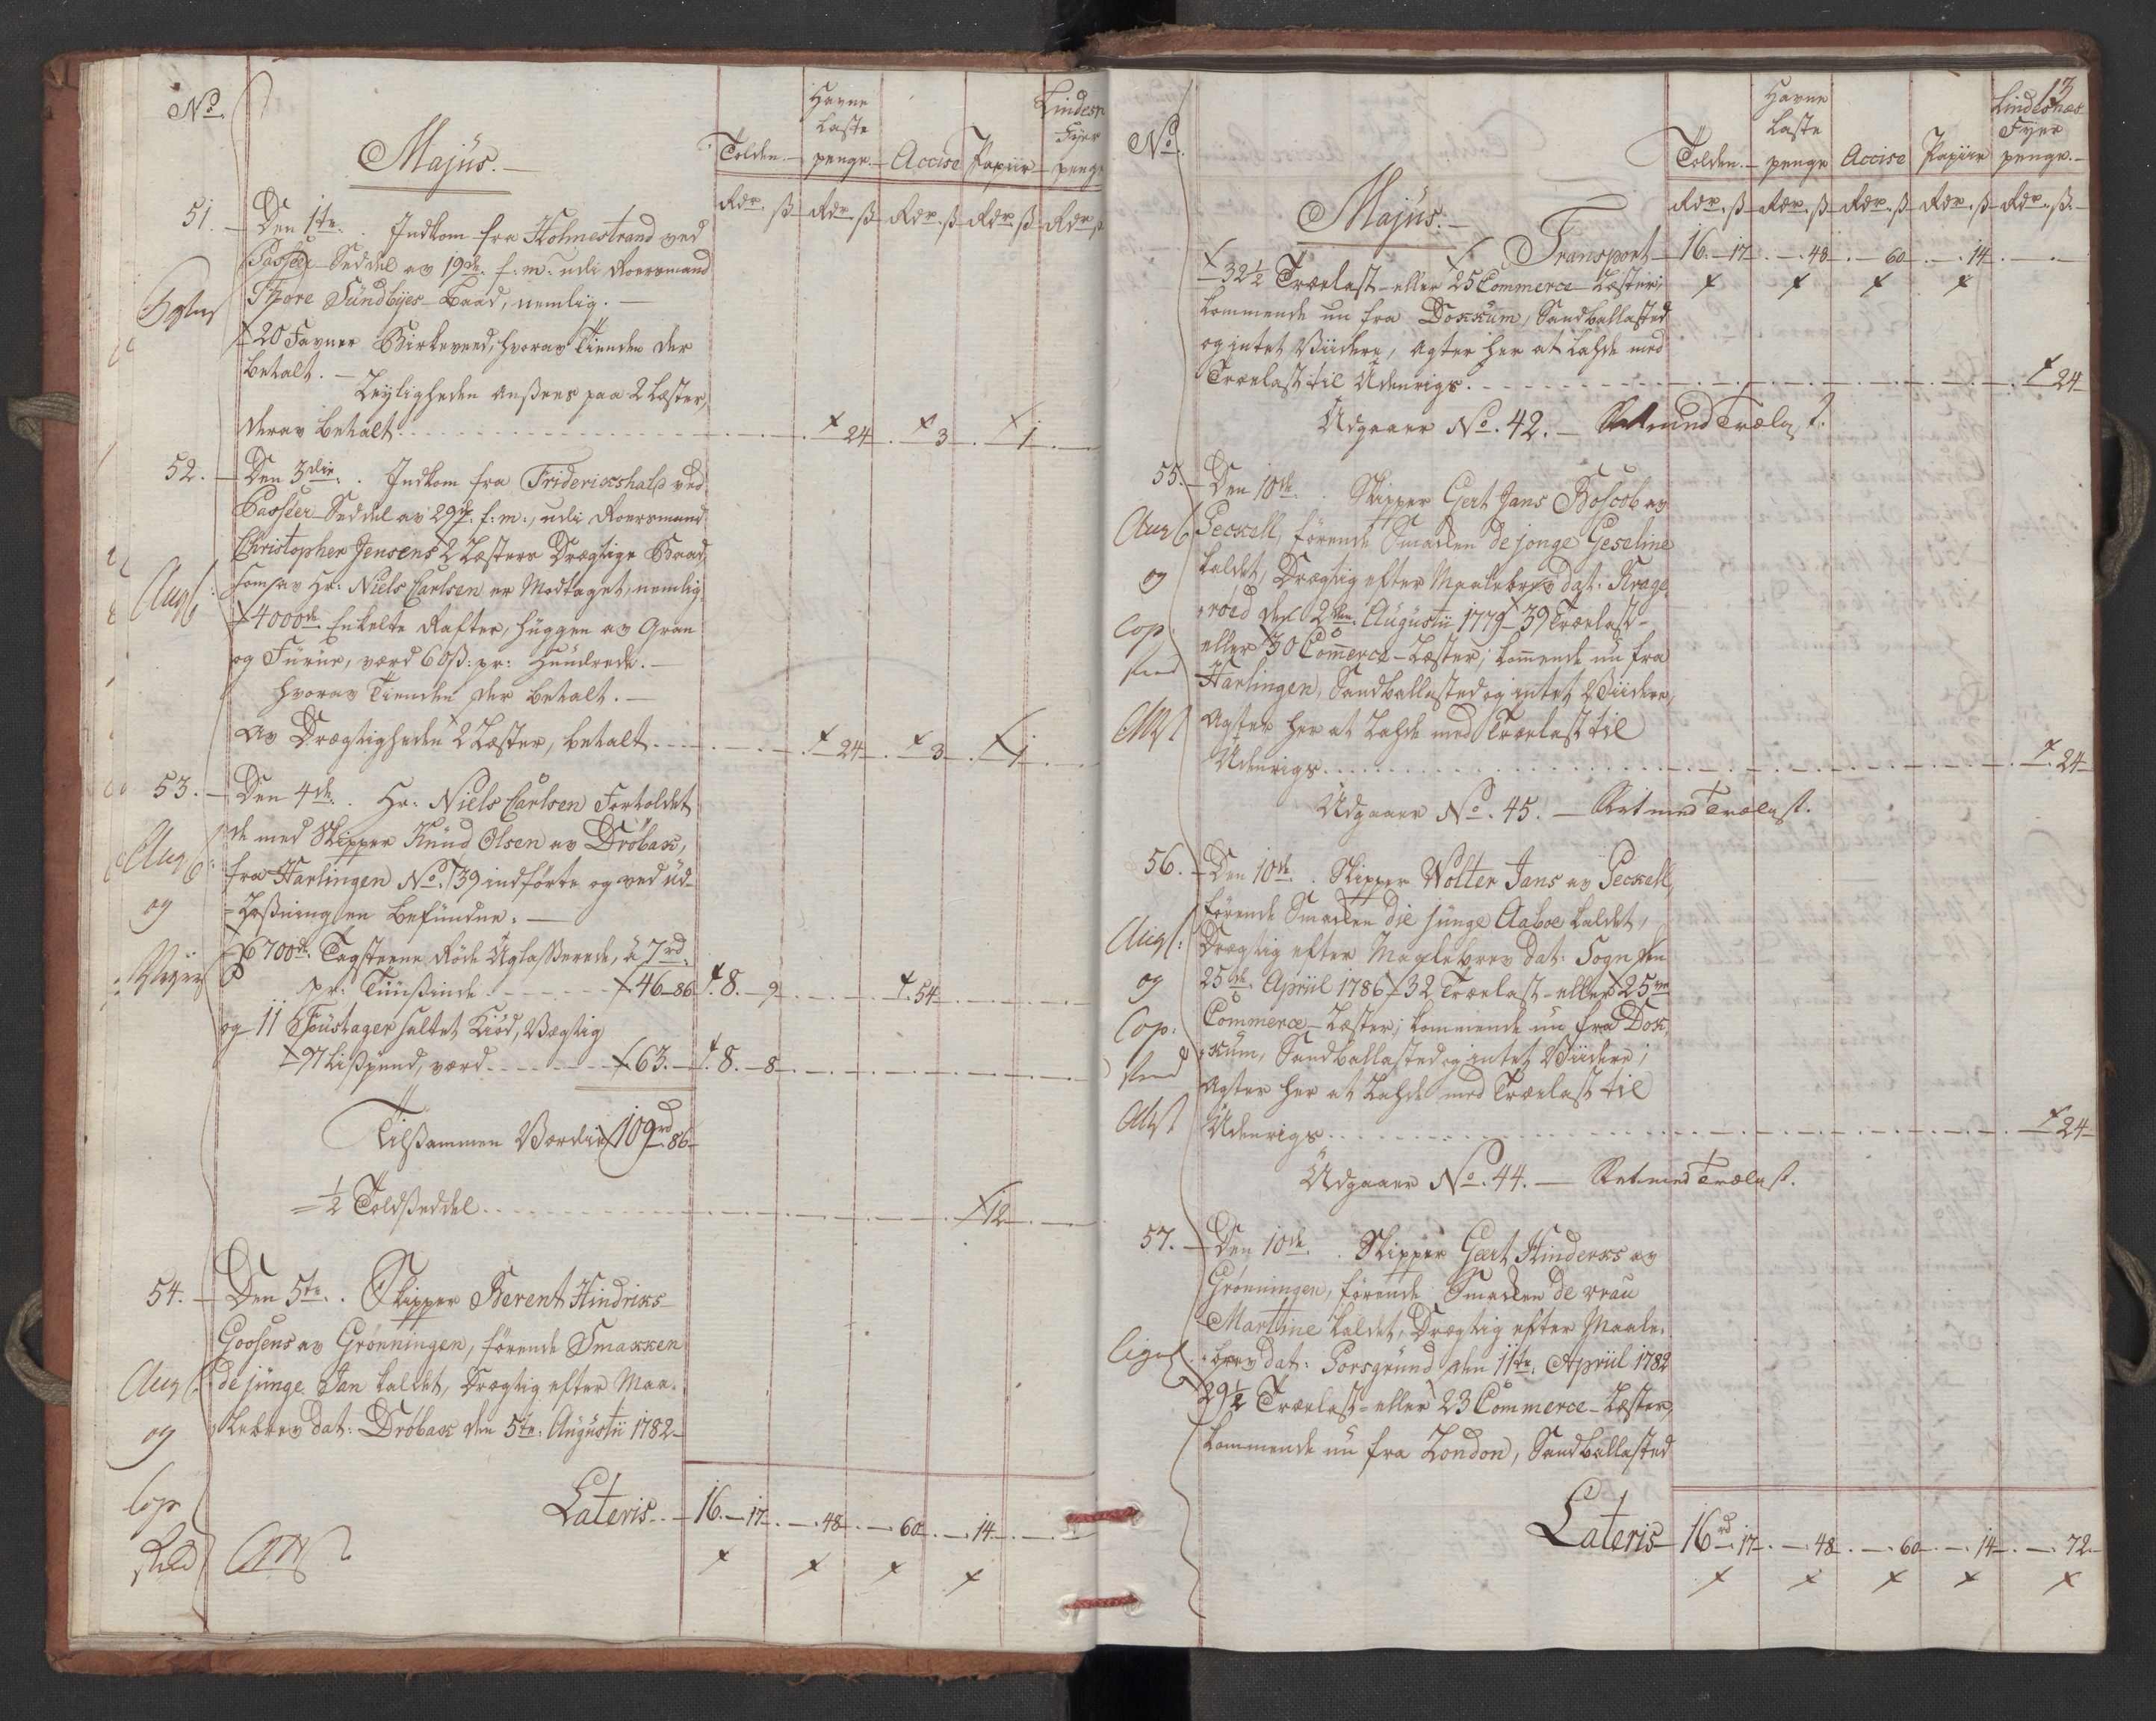 No.
Majus.
Tolden.
Havne
Laste
penge.
Accise
Papiir
Lindesn
Fyer
peng
Rdr. ß Rdr. ß Rdr. ß Rdr. ß Rdr
51. Den 1te. Indkom fra Holmestrand ved
Passeer Seddel av 19de. f: m: udi Roersmand
Thore Sündbyes Baad, nemlig.
20 Favner Birkeveed, hvorav Tienden der
betalt.
Leyligheden ansees paa 2 Læster,
derav betalt 24 3 1
52. Den 3die. Indkom fra Friderixhald ved
Passeer Seddel av 29de f: m:, udi Roersmand
Christopher Jensens 2 Læsters Drægtige Baad,
som av Hr: Niels Carlsen er Modtaget, nemlig
4000de Enkelte Rafter, huggen av Gran
og Fürue, værd 60ß: pr: Hundrede.
hvorav Tienden der betalt.
Av Drægtigheden 2 Læster, betalt 24 3 1
53. Den 4de. Hr: Niels Carlsen Fortoldet
de med Skipper Knüd Olsen av Drøbax,
fra Harlingen No. 39 indførte og ved üd-
=Losningen befündne:
6700de Tagsteene Røde Uglasserede, à 7rd
pr: Tüüsinde 46-86 8. 9 54
og 11 Foustager saltet Kiød, Vægtig
97 Lispund, værd 63. 8. 8
Tilsammen Værdie 109rd 86
½ Toldseddel 12
54. Den 5te. Skipper Berent Hindriks
Goosens av Grønningen, førende Smakken
de jünge Jan kaldet, Drægtig efter Maa-
lebrev dat: Drøbax den 5te: Augustii 1782
Aug
og
Cop
Lateris 16. 17 48 60 14
13
No.
Majus.
Tolden.
Havne
Laste
penge
Accise
Papiir
Lindesnæs
Fyer
penge.
Rdr. ß Rdr. ß Rdr. ß Rdr. ß Rdr. ß.
Transport 16. 17 48 60 14
32½ Trælast eller 25 Commerce Læster;
kommende nu fra Dokkum, Sandballasted
og intet Viidere, agter her at Lahde med
Trælast til Udenrigs. 24
Udgaaer No. 42. Ret med Trælast.
55. Den 10de. Skipper Gert Jans Boscob av
Peckell, førende Smakken de jonge Geseline
kaldet, Drægtig efter Maalebrev dat. Krage-
røed den 2den Augustii 1779 39 Trælast-
eller 30 Comerce-Læster; komende nu fra
Harlingen, Sandballasted og intet Viidere,
Agter her at Lahde med Trælast til
Udenrigs 24
Udgaaer No. 45. Ret med Trælast.
56. Den 10de. Skipper Wolter Jans av Peckell,
førende Smakken die jünge Aaboe kaldet,
Drægtig efter Maalebrev dat. Sogn den
25de Apriil 1786 32 Trælast eller 25ve
Commerce-Læster; kommende nu fra Dok-
kum, Sandballasted og intet Viidere;
Agter her at Lahde med Trælast til
Udenrigs 24
Udgaaer No. 44. Ret med Trælast.
57. Den 10de. Skipper Geert Hinderks av
Grønningen, førende Smakken de vrau
Martine kaldet, Drægtig efter Maale-
brev dat: Porsgrund den 11te. Apriil 1782
29½ Trælast eller 23 Commerce-Læster,
kommende nu fra London, Sandballasted
Lateris 16rd 17 48 60 14 72